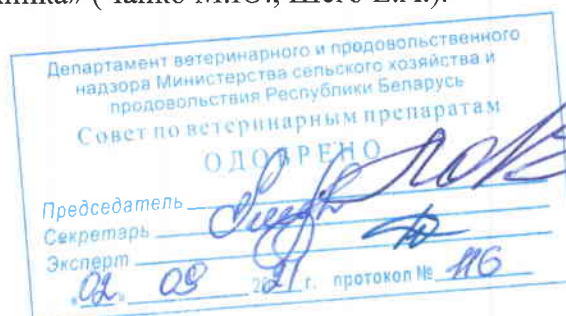 ника» (Чайко М.Ю., Шего Е.А.).
Департамент ветеринарного и продовольственного
надзора Министерства сельского хозяйства и
продовольствия Республики Беларусь
Совет по ветеринарным препаратам
ОДОБРЕНО
Председатель
Секретарь
Эксперт
«02» 09 2021 г. протокол № 116